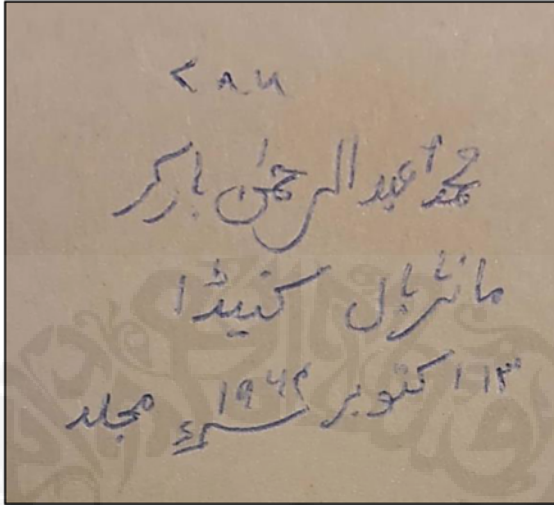 ۷۸۶
محمد عبد الرحمٰن بارکر
مانٹریال کنیڈا
۱۳ اکتوبر ۱۹۶۲ء مجلد